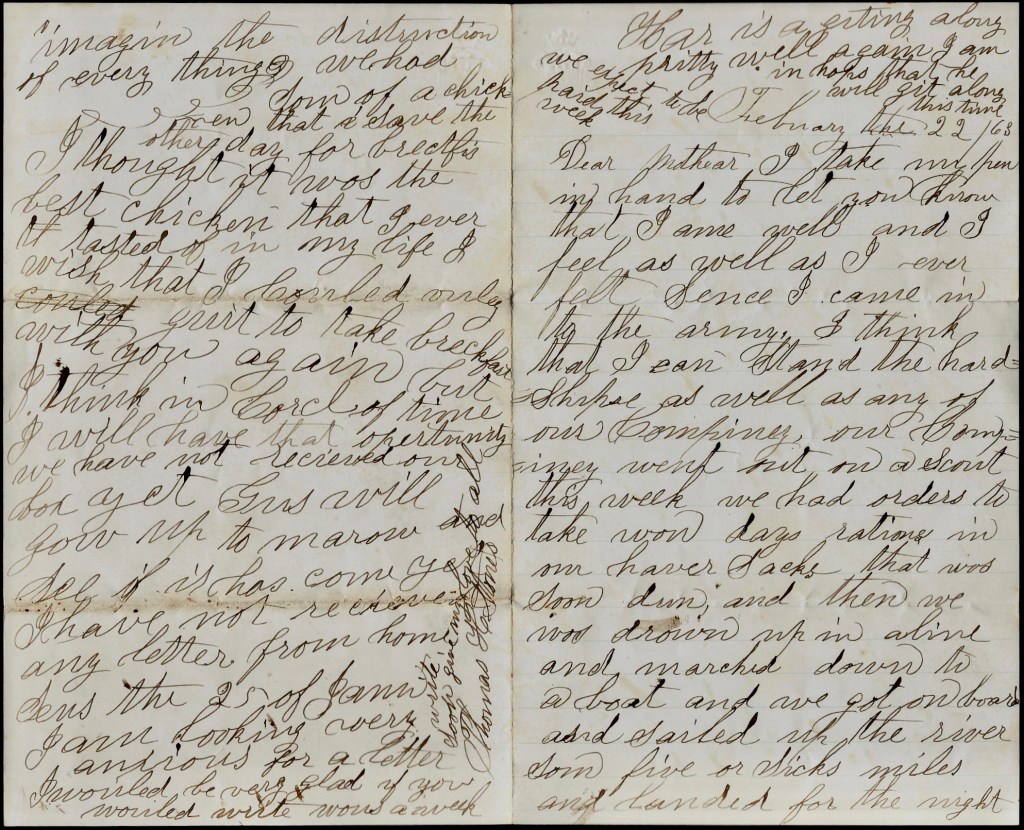 imagin the distruction
of every things we had
som of a chick
en that a save the
other day for brecffis
I thought it was the
best chicken that I ever
tt tasted of in my life I
wish that I Courled onley
couled gust to take breckfast
with you again but
I think in Corce of time
I will have that opertunity
we have not recieved our
box a yet Gus will
gow up to marow and
see if is has come ye
I have not recieve
any letter from home
sens the 25 of Janu
I am looking very
anxious for a letter
I wouled be very glad if you
wouled write wons a week
write
soon give my love to all
Thomas
Har is a giting along
pritty well again I am
in hops that he
will git along
this time
we expect
to be
paid this
week
February the 22 /63
Dear Mothear I take my pen
in hand to let you know
that I ame well and I
feel as well as I ever
felt Sence I came in
to the army, I think
that I can Stand the hard=
=Shipse as well as any of
our Compiney, our Comp=
=iney went out on a Scout
this week we had orders to
take won days rations in
our haver Sacks, that was
Soon dun, and then we
was drown up in a line
and marched down to
a boat and we got on board
and Sailed up the river
Som five or Sicks miles
and landed for the night